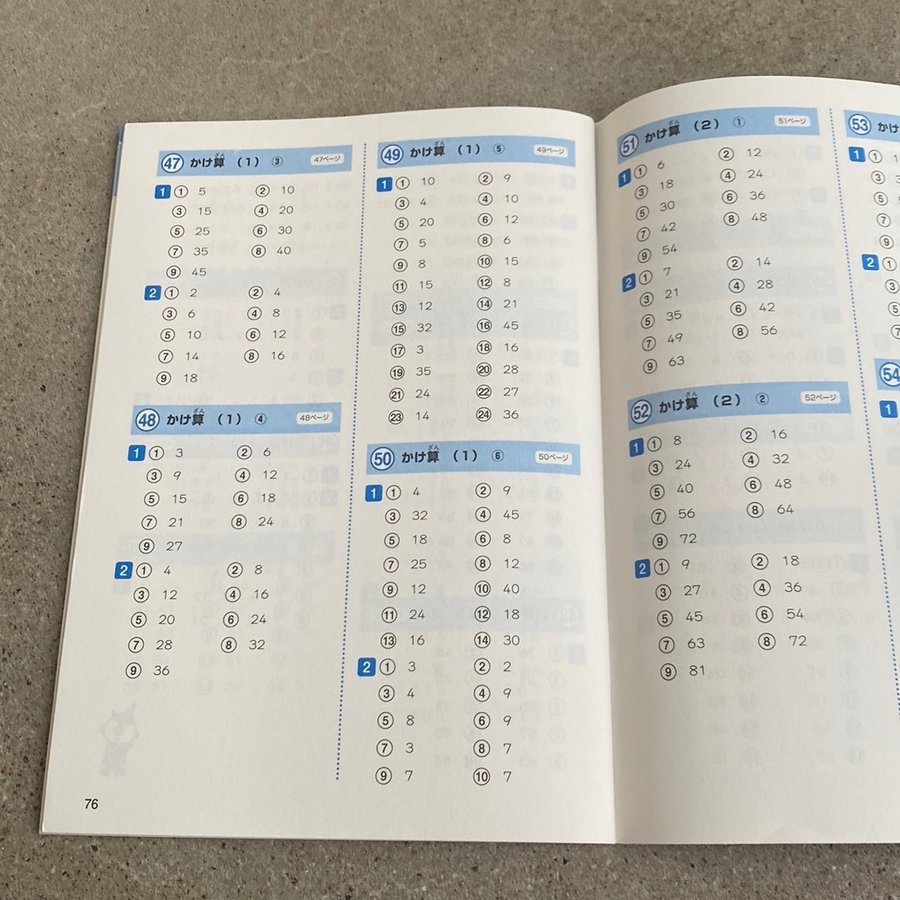 47 かけ算 (1) ③ 47ページ
1 ① 5 ② 10
③ 15 ④ 20
⑤ 25 ⑥ 30
⑦ 35 ⑧ 40
⑨ 45
2 ① 2 ② 4
③ 6 ④ 8
⑤ 10 ⑥ 12
⑦ 14 ⑧ 16
⑨ 18
48 かけ算 (1) ④ 48ページ
1 ① 3 ② 6
③ 9 ④ 12
⑤ 15 ⑥ 18
⑦ 21 ⑧ 24
⑨ 27
2 ① 4 ② 8
③ 12 ④ 16
⑤ 20 ⑥ 24
⑦ 28 ⑧ 32
⑨ 36
76
49 かけ算 (1) ⑤ 49ページ
1 ① 10 ② 9
③ 4 ④ 10
⑤ 20 ⑥ 12
⑦ 5 ⑧ 6
⑨ 8 ⑩ 15
⑪ 15 ⑫ 8
⑬ 12 ⑭ 21
⑮ 32 ⑯ 45
⑰ 3 ⑱ 16
⑲ 35 ⑳ 28
㉑ 24 ㉒ 27
㉓ 14 ㉔ 36
50 かけ算 (1) ⑥ 50ページ
1 ① 4 ② 9
③ 32 ④ 45
⑤ 18 ⑥ 8
⑦ 25 ⑧ 12
⑨ 12 ⑩ 40
⑪ 24 ⑫ 18
⑬ 16 ⑭ 30
2 ① 3 ② 2
③ 4 ④ 9
⑤ 8 ⑥ 9
⑦ 3 ⑧ 7
⑨ 7 ⑩ 7
51 かけ算 (2) ① 51ページ
1 ① 6 ② 12
③ 18 ④ 24
⑤ 30 ⑥ 36
⑦ 42 ⑧ 48
⑨ 54
2 ① 7 ② 14
③ 21 ④ 28
⑤ 35 ⑥ 42
⑦ 49 ⑧ 56
⑨ 63
52 かけ算 (2) ② 52ページ
1 ① 8 ② 16
③ 24 ④ 32
⑤ 40 ⑥ 48
⑦ 56 ⑧ 64
⑨ 72
2 ① 9 ② 18
③ 27 ④ 36
⑤ 45 ⑥ 54
⑦ 63 ⑧ 72
⑨ 81
53 かけ
1 ①
③
⑤
⑦
⑨
2 ①
③
⑤
⑦
54
1